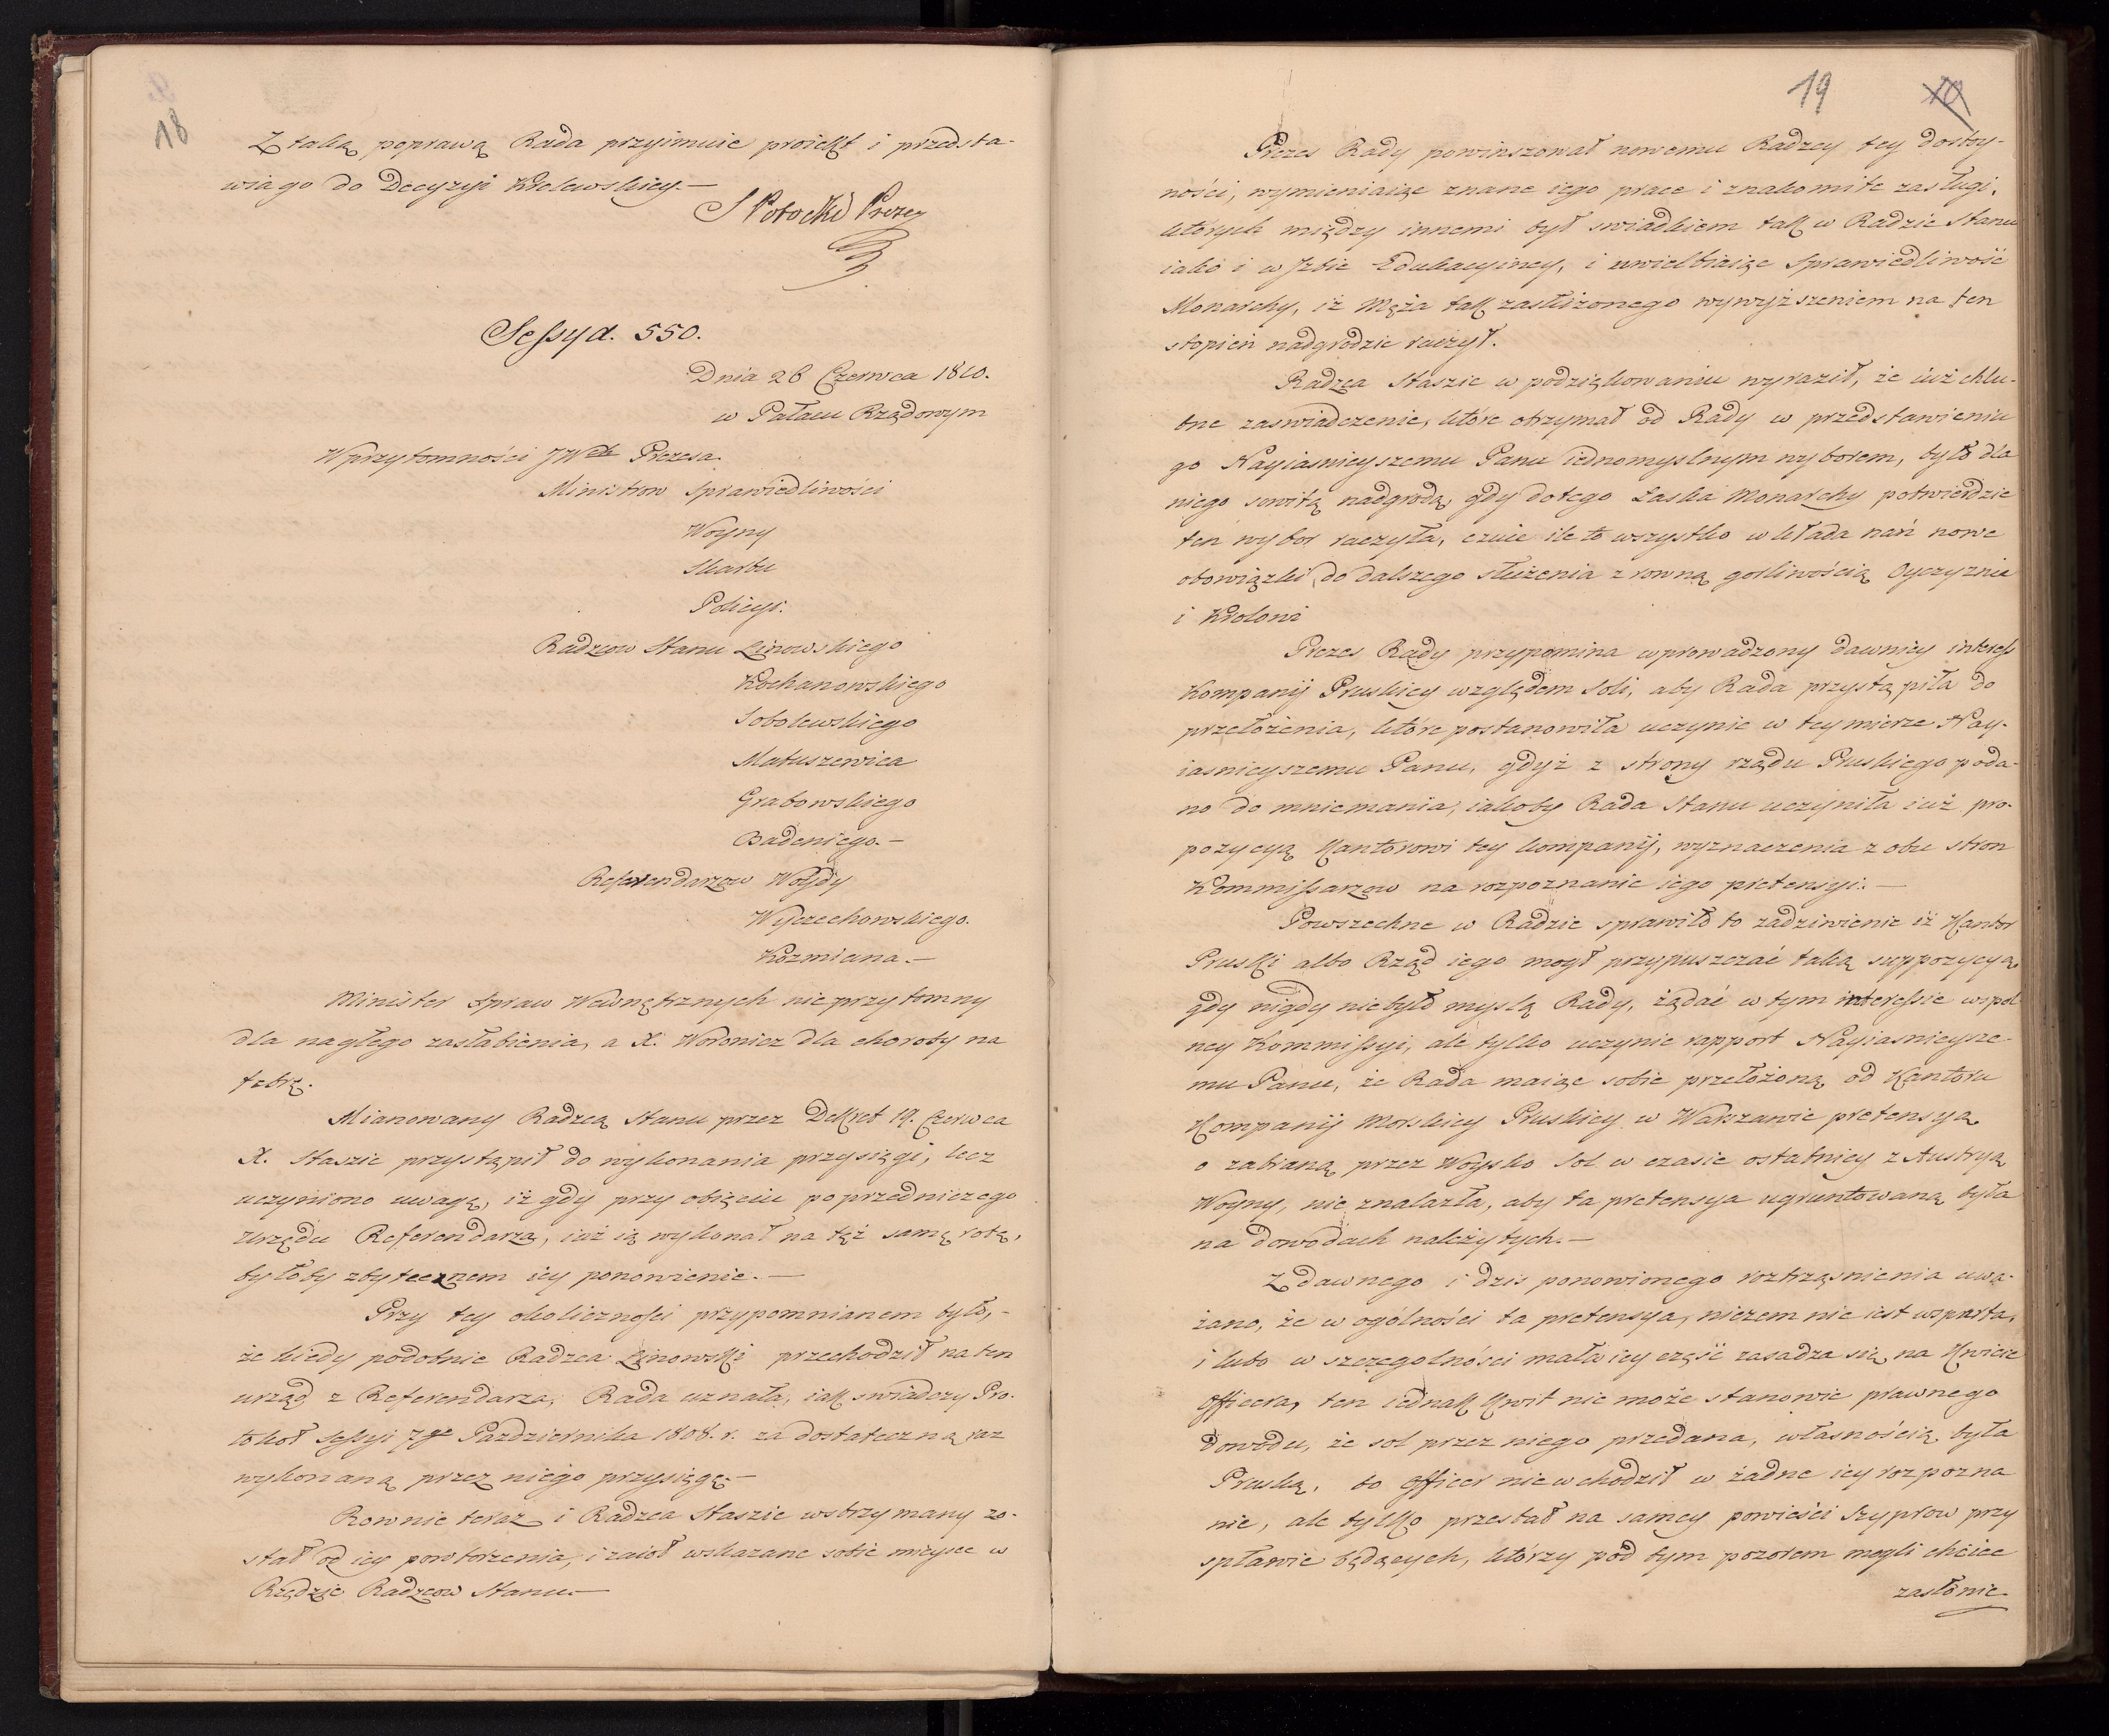 18
Z taką poprawą Rada przyimuie proiekt i przedsta-
wia go do Decyzyi Krolewskiey.—
S Potocki Prezes
Sessya. 550.
Dnia 26 Czerwca 1810.
w Pałacu Rządowym
W przytomności JWch Prezesa.
Ministrow Sprawiedliwości
Woyny
Skarbu
Policyi.
Radzcow Stanu Linowskiego
Kochanowskiego
Sobolewskiego
Matuszewica
Grabowskiego
Badeniego.—
Referendarzow Woydy
Wyczechowskiego.
Kozmiana.—
Minister Spraw Wewnętrznych nieprzytomny
dla nagłego zasłabienia, a X. Woronicz dla choroby na
febrę.
Mianowany Radzcą Stanu przez Dekret 19. Czerwca
X. Staszic przystąpił do wykonania przysięgi, lecz
uczyniono uwagę, iż gdy przy obięciu poprzedniczego
Urzędu Referendarza, iuż ią wykonał na tęż samę rotę,
byłoby zbytecznem iey ponowienie.—
Przy tey okoliczności przypomnianem było,-
że kiedy podobnie Radzca Linowski przechodził na ten
urząd z Referendarza, Rada uznała, iak swiadczy Pro-
tokoł Sessyi 7go Pazdziernika 1808. r. za dostateczną raz
wykonaną przez niego przysięgę.—
Rownie teraz i Radzca Staszic wstrzymany zo-
stał od iey powtorzenia, i zaioł wskazane sobie mieysce w
Rzędzie Radzcow Stanu.—
19 10
Prezes Rady powinszował nowemu Radzcy tey dostoy-
ności, wymieniaiąc znane iego prace i znakomite zasługi,
których między innemi był swiadkiem tak w Radzie Stanu
iako i w Izbie Edukacyiney, i uwielbiaiąc Sprawiedliwość
Monarchy, iż Męża tak zasłużonego wywyższeniem na ten
stopień nadgrodzic raczył.
Radzca Staszic w podziękowaniu wyraził, że iuż chlu-
bne zaswiadczenie, które otrzymał od Rady w przedstawieniu
go Nayiasnieyszemu Panu iednomyslnym wyborem, było dla
niego sowitą nadgrodą, gdy do tego Łaska Monarchy potwierdzic
ten wybor raczyła, czuie ile to wszystko wkłada nań nowe
obowiązki do dalszego służenia z rowną gorliwością Oyczyznie
i Krolowi
Prezes Rady przypomina wprowadzony dawniey interess
Kompanij Pruskiey względem Soli, aby Rada przystąpiła do
przełożenia, które postanowiła uczynic w tey mierze Nay-
iasnieyszemu Panu, gdyż z strony rządu Pruskiego poda-
no do mniemania, iakoby Rada Stanu uczyniła iuż pro-
pozycyą Kantorowi tey kompanij, wyznaczenia z obu stron
Kommissarzow na rozpoznanie iego pretensyi.—
Powszechne w Radzie sprawiło to zadziwienie iż Kantor
Pruski albo Rząd iego mogł przypuszczać taką suppozycyą,
gdy nigdy niebyło myslą Rady, żądać w tym interessie wspol
ney Kommissyi, ale tylko uczynic rapport Nayiasnieysze-
mu Panu, że Rada maiąc sobie przełożoną od Kantoru
Kompanij Morskiey Pruskiey w Warszawie pretensyą
o zabraną przez Woysko Sol w czasie ostatniey z Austryą
Woyny, nie znalazła, aby ta pretensya ugruntowaną była
na dowodach należytych.—
Z dawnego i dzis ponowionego roztrząsnienia uwa-
żano, że w ogólności ta pretensya, niczem nie iest wsparta,
i lubo w szczegolności mała iey część zasadza się na Kwicie
Officera, ten iednak Kwit nie może stanowic prawnego
dowodu, że sol przez niego przedana, własnością była
Pruską, bo Officer niewchodził w żadne iey rozpozna
nie, ale tylko przestał na samey powieści Szyprow przy
spławie będących, którzy pod tym pozorem mogli chciec
zasłonic